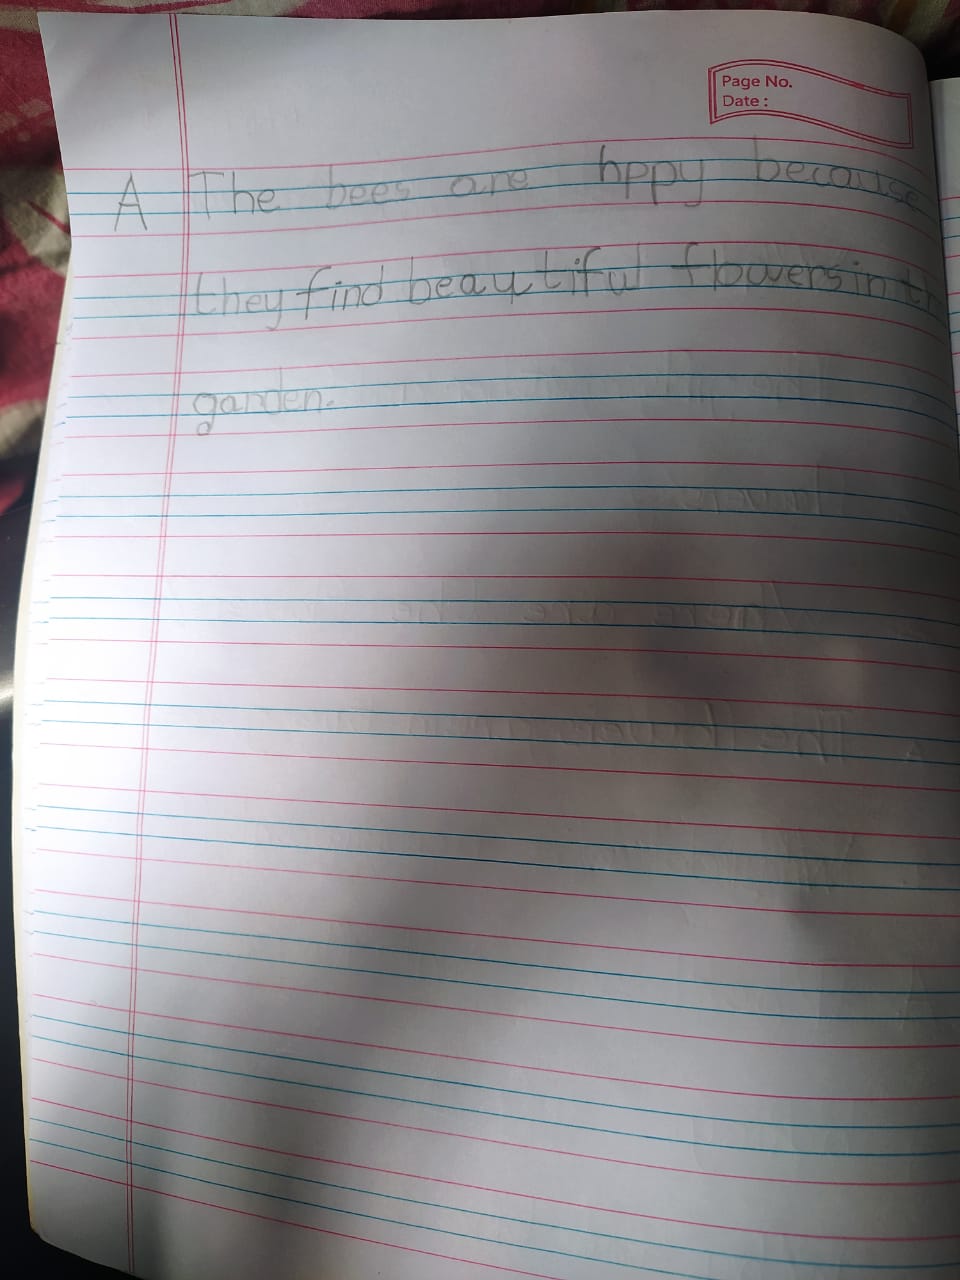 Page No.
Date :
A The bees are hppy because
they find beautiful flowers in
garden.